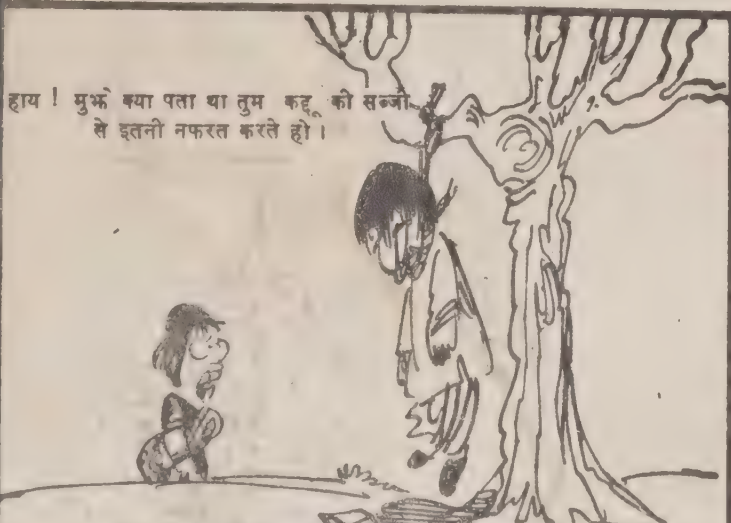 हाय ! मुझे क्या पता था तुम कद्दू की सब्जी
से इतनी नफरत करते हो ।